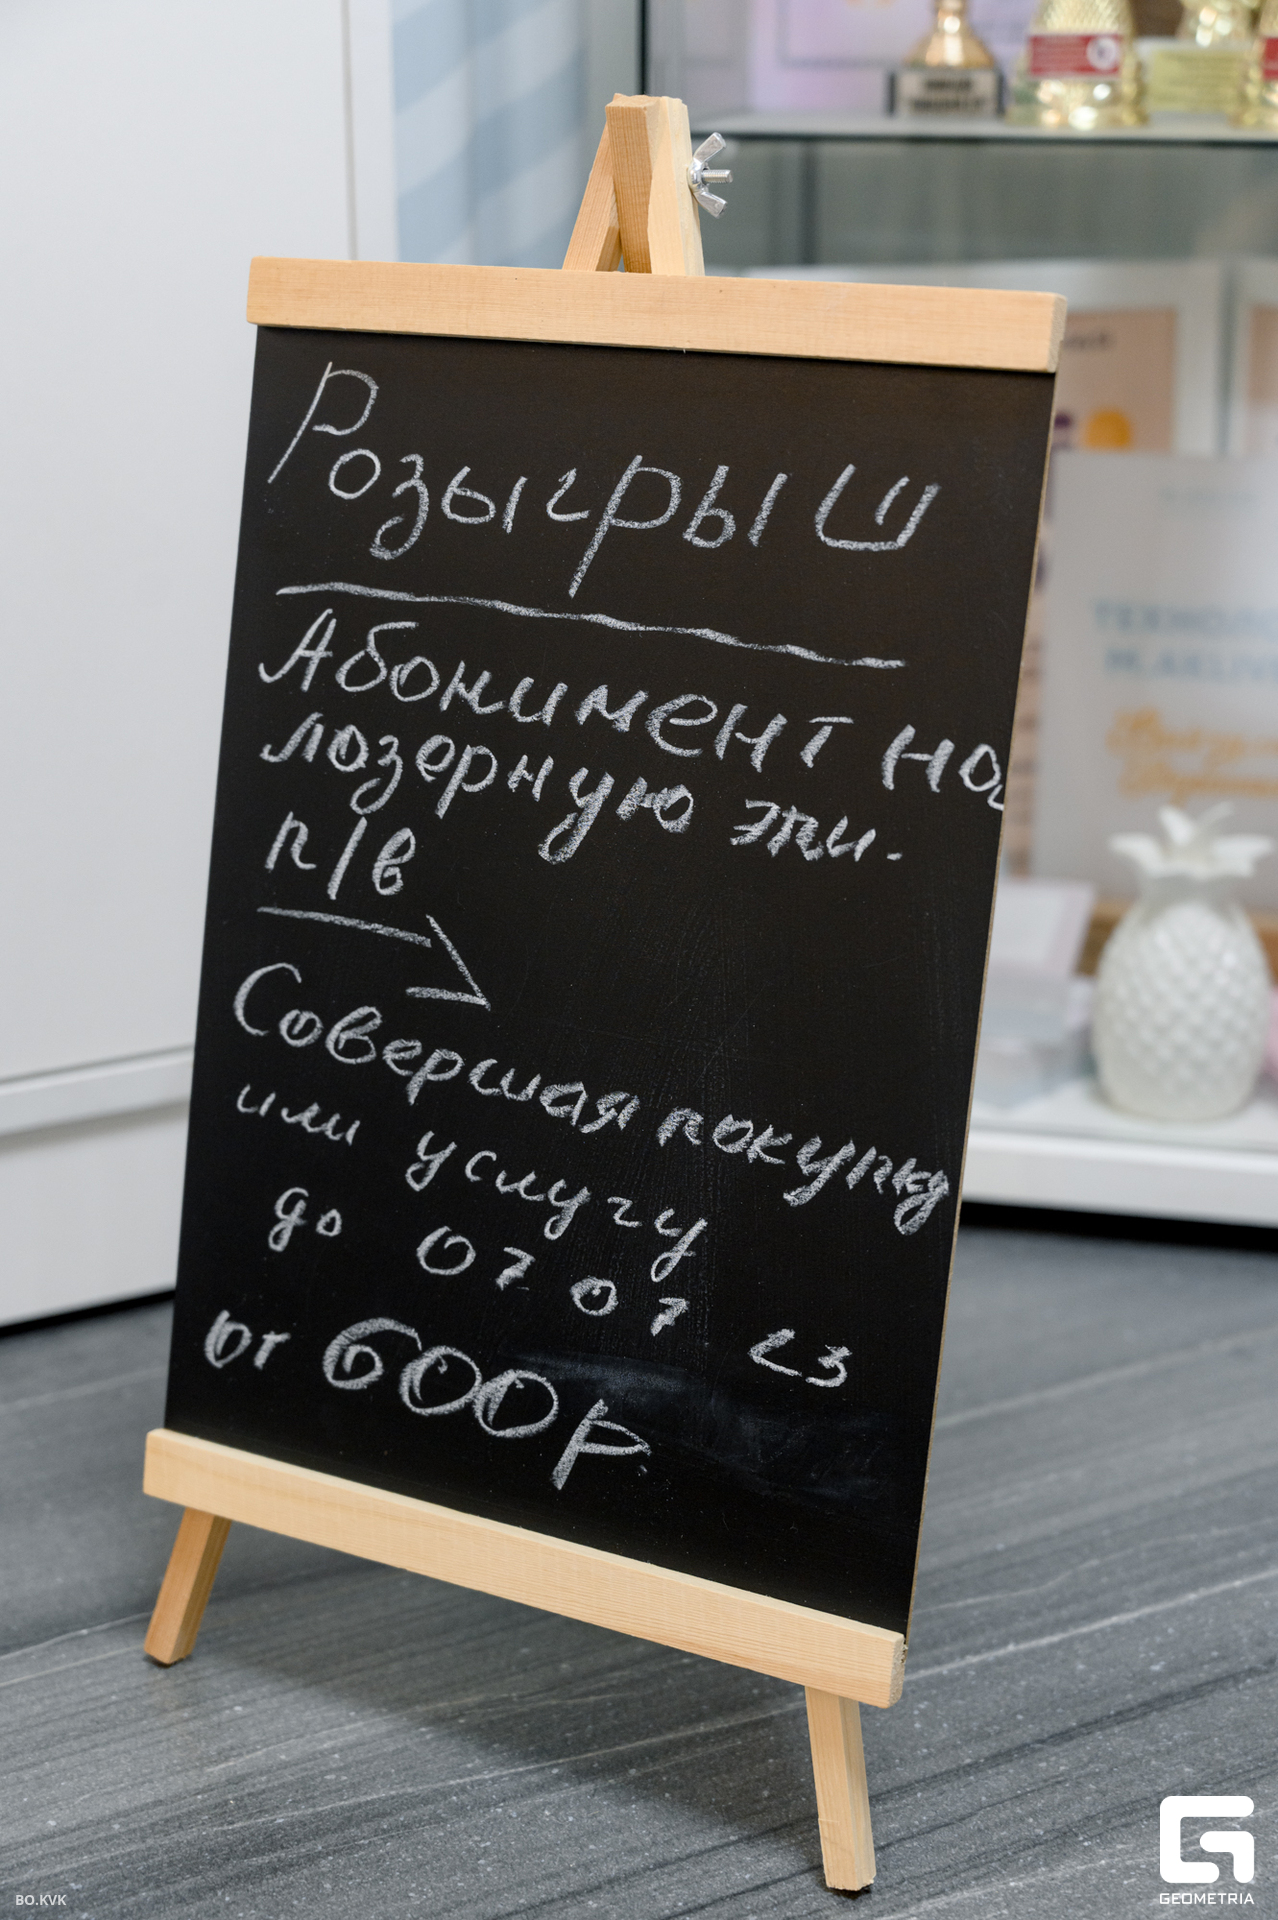 Розыгрыш
Абонимент на
лазерную эпи.
п/в
Совершая покупку
или услугу
до 07 07 23
от 600 р.
ТЕХНОЛ
BO.KVK
GEOMETRIA